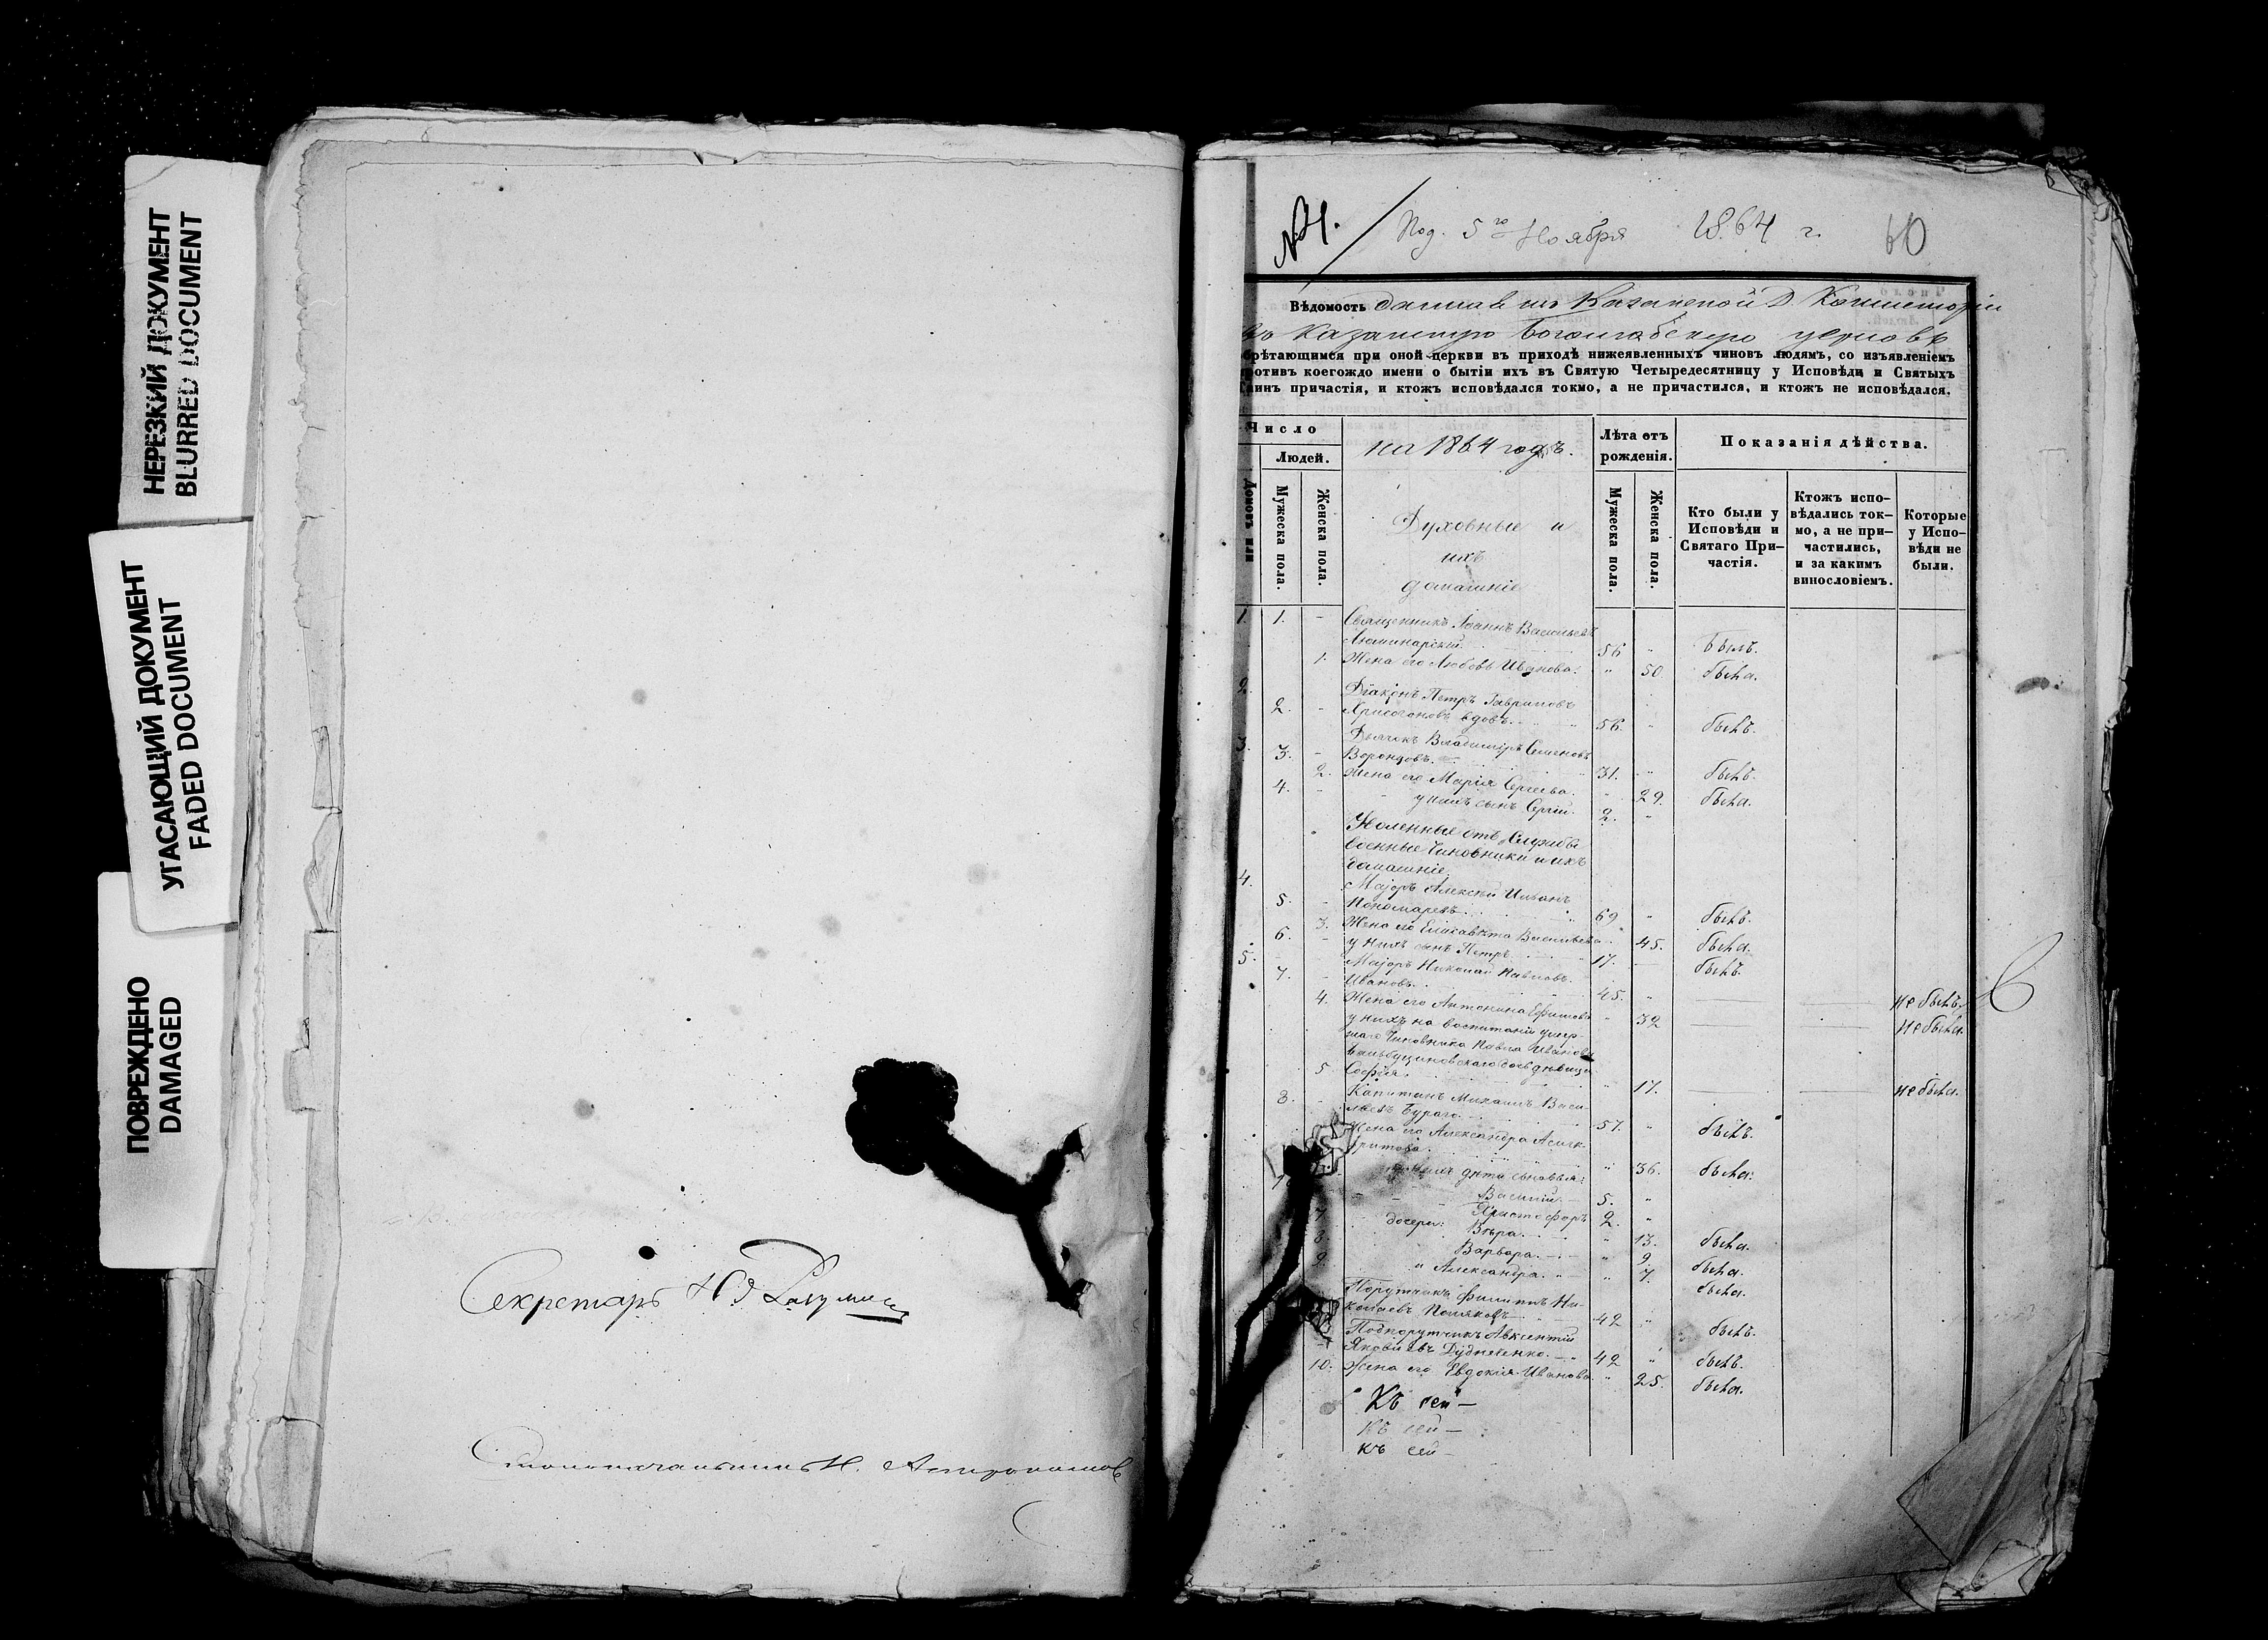 НЕРЕЗКИЙ ДОКУМЕНТ
BLURRED DOCUMENT
УГАСАЮЩИЙ ДОКУМЕНТ
FADED DOCUMENT
ПОВРЕЖДЕНО
DAMAGED
Секретарь
Столоначальникъ Н.
Под. 5го Ноября 1864 г. 60
Вѣдомость данная изъ Казанской Д. Консисторіи
въ церковь
брѣтающимся при оной церкви въ приходѣ нижеявленныхъ чиновъ людямъ, со изъявленіемъ
ротивъ коегождо имени о бытіи ихъ въ Святую Четыредесятницу у Исповѣди и Святыхъ
аинъ причастія, и ктожъ исповѣдался токмо, а не причастился, и ктожъ не исповѣдался.
Число
Людей.
Домовъ или
Мужеска пола.
Женска пола.
на 1864 годъ.
Духовные и
ихъ
домашніе
Лѣта отъ
рожденія.
Мужеска пола.
Женска пола.
Показанія дѣйства.
Кто были у
Исповѣди и
Святаго При-
частія.
Ктожъ испо-
вѣдались ток-
мо, а не при-
частились,
и за каким
винословіемъ.
Которые
у Испо-
вѣди не
были.
1. 1. - Священникъ Іоаннъ Васильевъ
Люминарскій 56 " былъ.
1. Жена его Любовь Иванова. " 50 была.
2. Діаконъ Петръ Гавриловъ
2. - вдовъ. 56. " былъ.
3. Дьячокъ Владиміръ Семеновъ
3. - Воронцовъ. 31. " былъ.
2. Жена его Марія Сергеева. " 29. была.
4. - у нихъ сынъ Сергій. 2. "
Уволенные отъ Службы
военные Чиновники и ихъ
домашніе.
4. Маіоръ Алексѣй Иванъ
5. - Пономаревъ. 69 " былъ.
3. Жена его Елисавета Васильева " 45. была.
6. - у нихъ сынъ Петръ 17. былъ.
5. Маіоръ Николай Павловъ
7. - Ивановъ. 45. " не былъ.
4. Жена его Антонина Ефимова " 32 не была.
у нихъ на воспитаніи умер-
шаго Чиновника Павла Иванова
дѣвица
5 Софія. " 17. не была.
8. - Капитанъ Михаилъ Васи-
льевъ Бураго. 57. " былъ.
Жена его Александра
" 36. была.
у нихъ дѣти сыновья:
Василій. 5. "
Христофоръ 2. "
7 дочери: Вѣра. " 13. была.
8. Варвара. " 9. была.
9. и Александра. " 7. была.
Порутчикъ Филиппъ Ни-
колаевъ Поляковъ 42 " былъ.
Подпорутчикъ Авксентій
Яковлевъ 42 " былъ.
10. Жена его Евдокія Иванова " 25. была.
Къ сей -
Къ сей -
Къ сей -